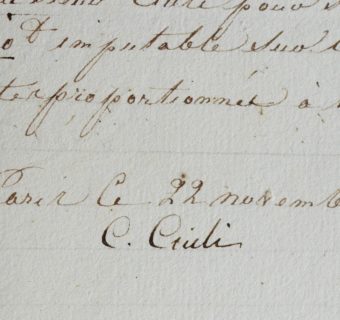 pour
imputable sur
et proportionnés à
Paris Le 22 novemb
C. Ciuli